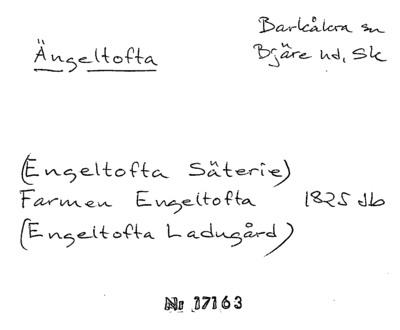 Barkåkra sn
Ängeltofta
Bjäre hd, Sk
(Engeltofta Säterie)
Farmen Engeltofta 1825 db
(Engeltofta Ladugård)
Nr 17163